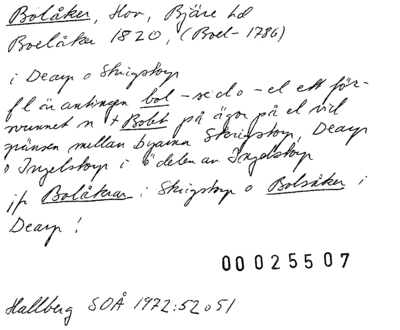 Bolåker, Hov, Bjäre hd
Boelåker 1820, (Boel- 1786)
i Dearp o Skrigstorp
fl är antingen bol - se d o - el ett för-
svunnet n + Bolet på ägor på el vid
gränsen mellan byarna Skrigstorp, Dearp
o Ingelstorp i ö delen av Ingelstorp
jfr Bolåkrar i Skrigstorp o Bolsåker i
Dearp!
00025507
Hallberg SOÅ 1972:52 o 51